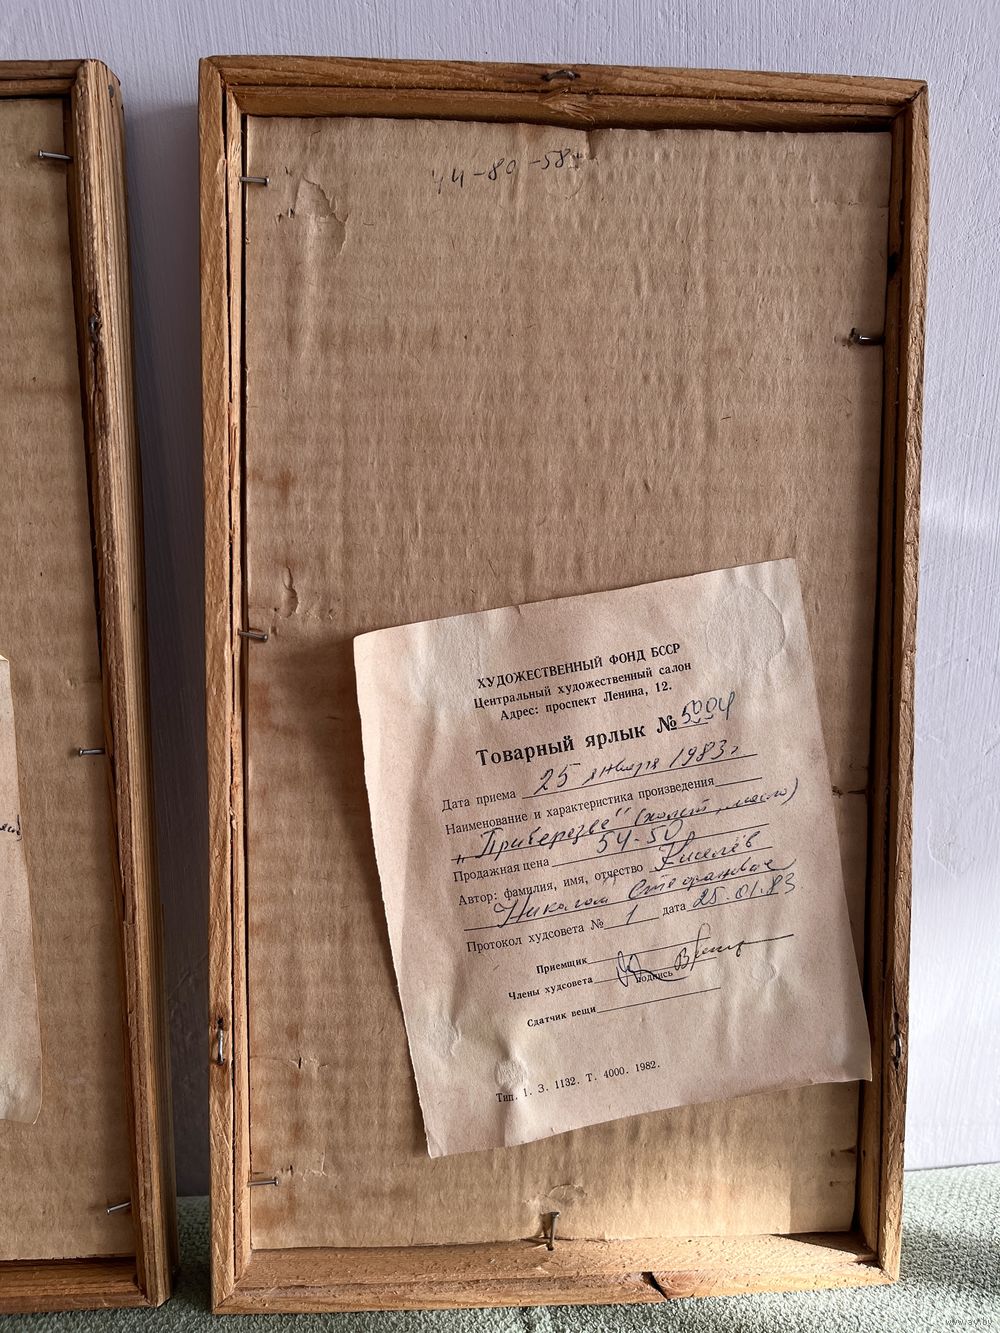 44-80-58
ХУДОЖЕСТВЕННЫЙ ФОНД БССР
Центральный художественный салон
Адрес: проспект Ленина, 12.
Товарный ярлык № 5004
Дата приема 25 января 1983 г
Наименование и характеристика произведения
„Приберезье" (холст, масло)
Продажная цена 54-50
Автор: фамилия, имя, отчество Киселёв
Николай Стефанович
Протокол худсовета № 1 дата 25.01.83.
Приемщик
Члены худсовета
подпись
Сдатчик вещи
Тип. 1. З. 1132. Т. 4000. 1982.
www.ay.by